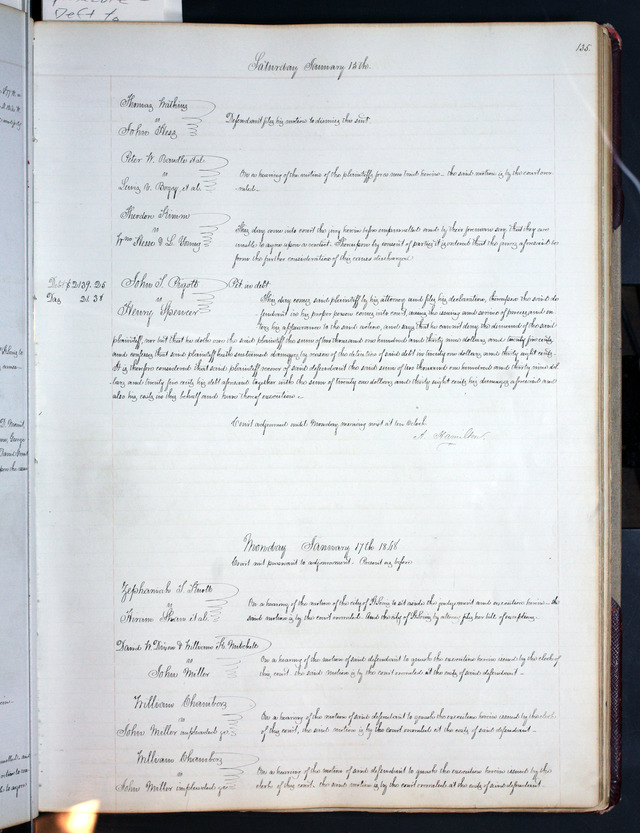 Deft to
135.
Saturday January 15th
Thomas Watkins
vs
John Hess
Defendant files his motion to dismiss this suit
Peter W. et al
vs
Lewis V. Bogy et al.
On a hearing of the motion of the plaintiffs for a new trial herein — the said motion is by the court over
ruled —
Theodore
vs
Wm Hesse & L. Young
This day came into court the jury herein before empannelled and by their foreman say that they are
unable to agree upon a verdict. Thereupon by consent of parties it is ordered that the jurors aforesaid be
from the further consideration of this cause discharged
Debt $2139.25
Dmg 21.38
John T. Pigott
vs
Henry Spencer
Pet. in debt
This day comes said plaintiff by his attorney and files his declaration, thereupon the said de
fendant in his proper person comes into court, waives the issuing and service of process, and en
ters his appearance to the said action, and says that he cannot deny the demand of the said
plaintiff, nor but that he doth owe the said plaintiff the sum of two thousand one hundred and thirty nine dollars and twenty five cents,
and confesses that said plaintiff hath sustained damages by reason of the detention of said debt in twenty one dollars and thirty eight cents.
It is therefore considered that said plaintiff recover of said defendant the said sum of two thousand one hundred and thirty nine dol
lars and twenty five cents his debt aforesaid together with the sum of twenty one dollars and thirty eight cents his damages aforesaid and
also his costs in this behalf and have thereof execution —
Court adjourned until Monday morning next at ten O'clock
A. Hamilton
Monday January 17th 1848
Court met pursuant to adjournment. Present as before
Zephaniah T.
vs
Hiram Shaw et al.
On a hearing of the motion of the city of St Louis to set aside the judgment and execution herein — the
said motion is by the court overruled. And the city of St Louis by attorney files her bill of exceptions.
David W. Dixon & William H. Mitchell
vs
John Miller
On a hearing of the motion of said defendant to quash the execution herein issued by the clerk of
this court, the said motion is by the court overruled at the costs of said defendant —
William Chambers
vs
John Miller impleaded &c
On a hearing of the motion of said defendant to quash the execution herein issued by the clerk
of this court, the said motion is by the court overruled at the costs of said defendant —
William Chambers
vs
John Miller impleaded &c
On a hearing of the motion of said defendant to quash the execution herein issued by the
clerk of this court, the said motion is by the court overruled at the costs of said defendant.